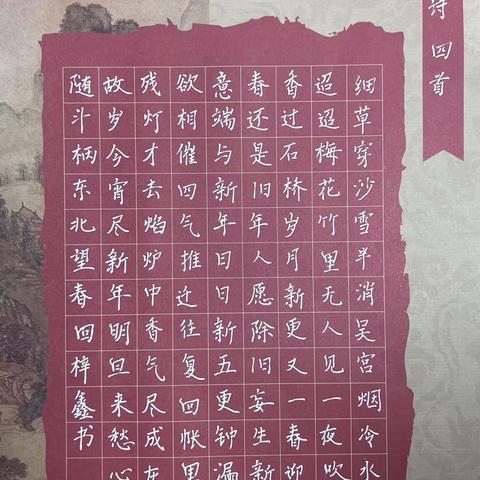 诗四首
细草穿沙雪半消吴宫烟冷水
迢迢梅花竹里无人见一夜吹
香过石桥岁月新更又一春迎
春还是旧年人愿除旧妄生新
意端与新年日日新五更钟漏
欲相催四气推迁往复回帐里
残灯才去焰炉中香气尽成灰
故岁今宵尽新年明旦来愁心
随斗柄东北望春回梓鑫书